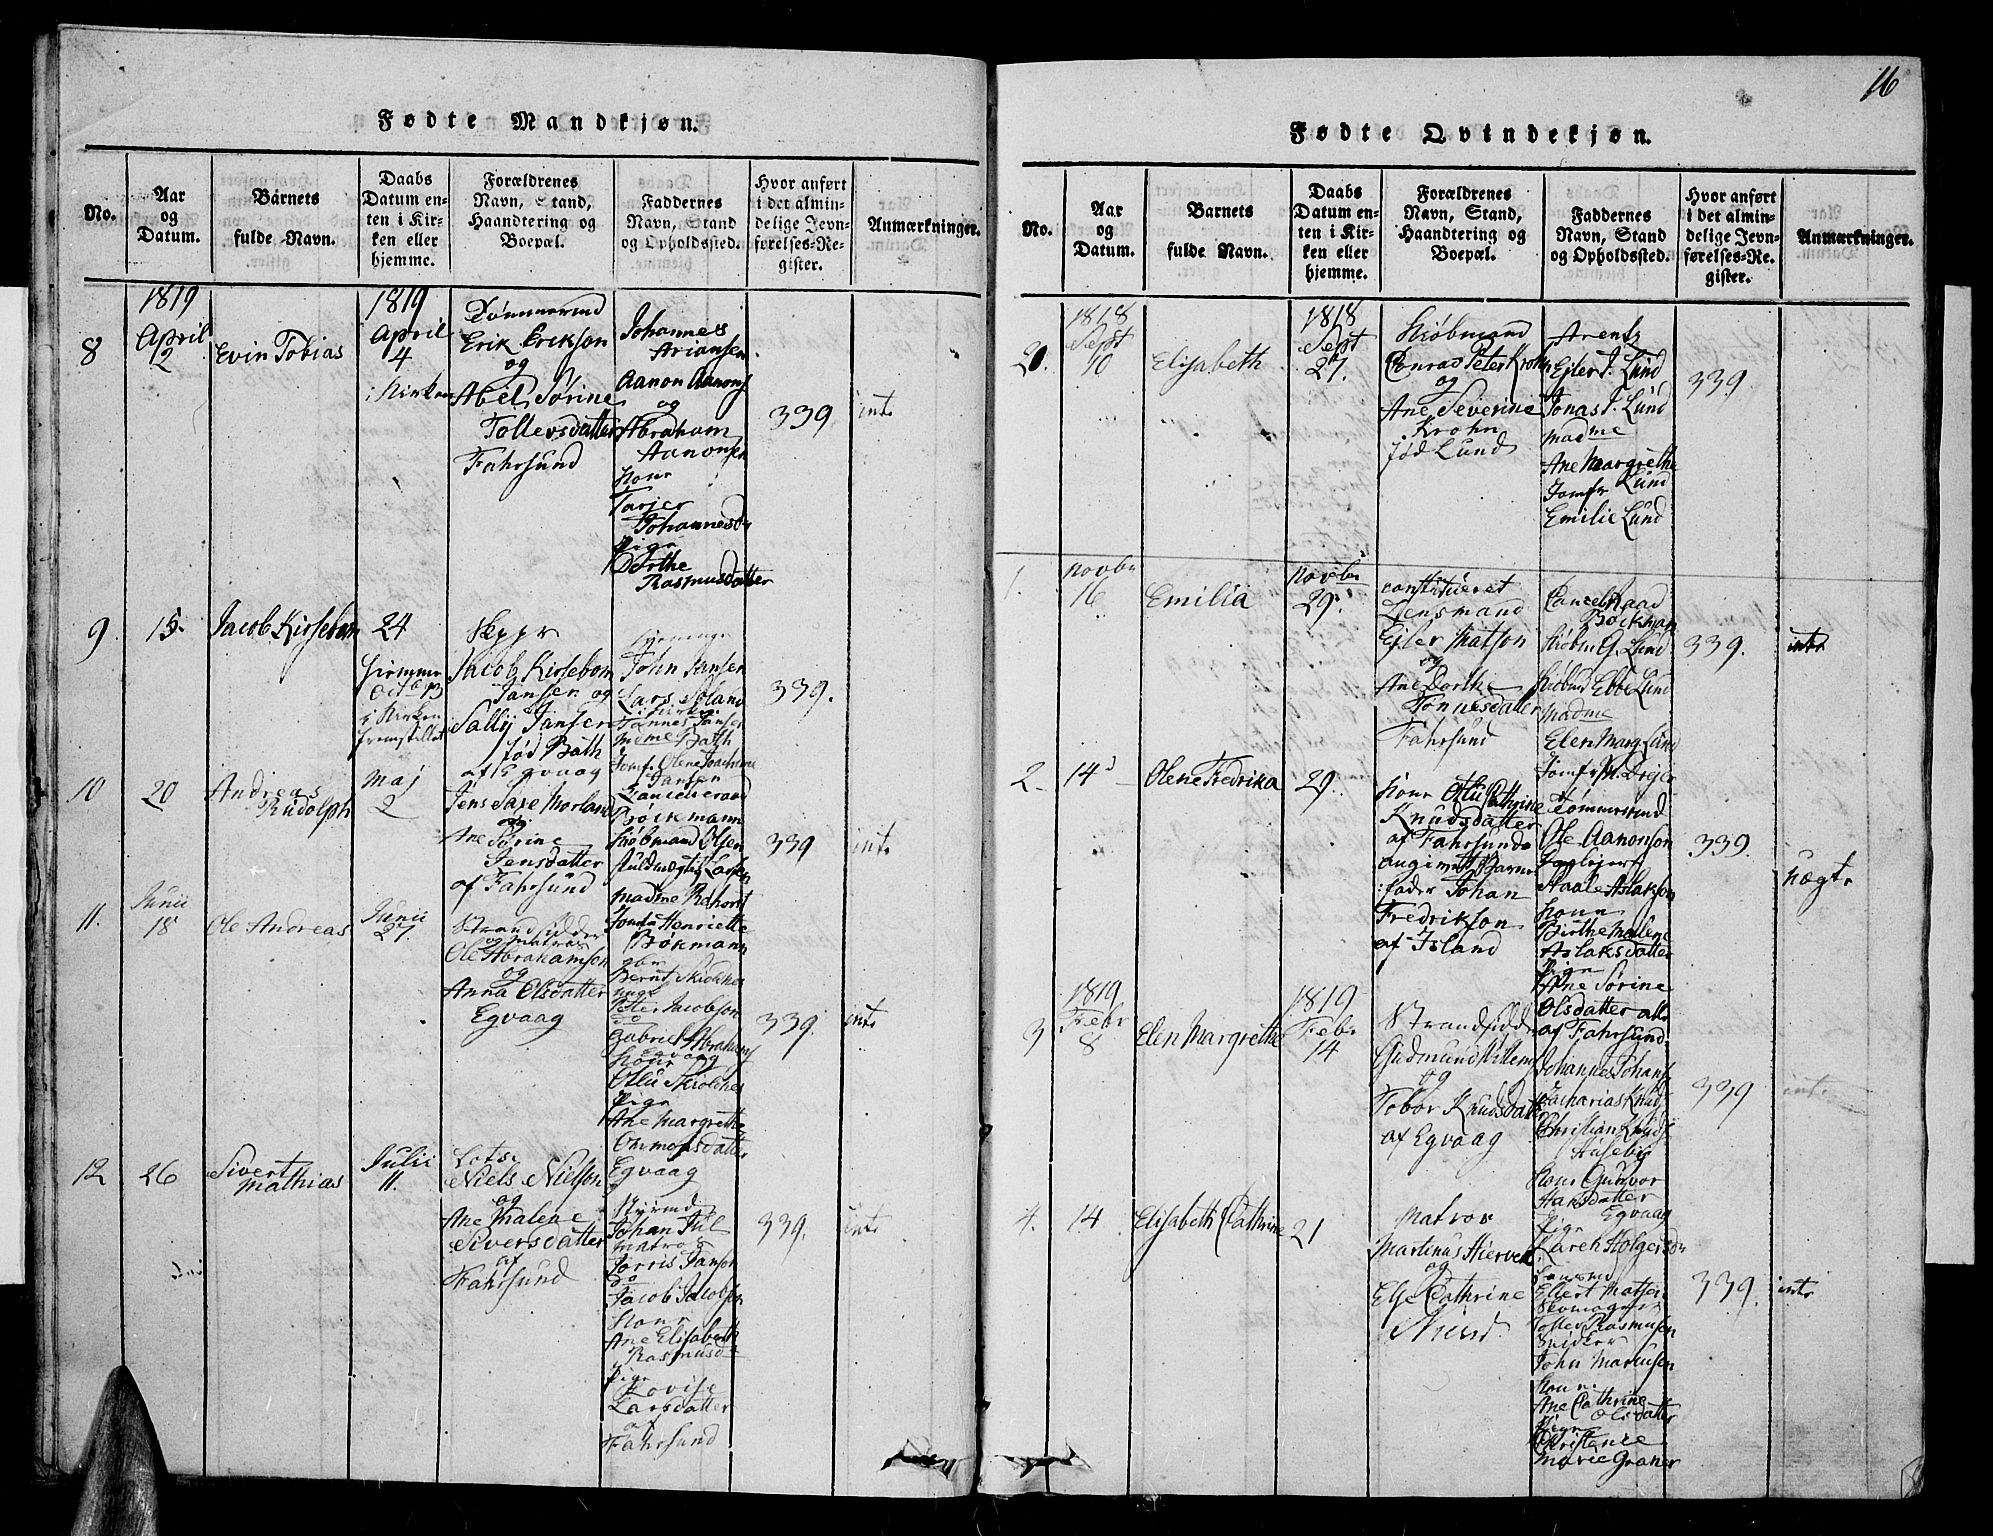 16
Fødte Mandkjøn.
No.
Aar
og
Datum.
Barnets
fulde Navn.
Daabs
Datum en-
ten i Kir-
ken eller
hjemme.
Forældrenes
Navn, Stand,
Haandtering og
Boepæl.
Faddernes
Navn, Stand
og Opholdssted.
Hvor anført
i det almin-
delige Jevn-
førelses-Re-
gister.
Anmærkninger.
8
1819
April
2
Evin Tobias
1819
April
4
i Kirken
Tømmermd
Erik Erikson
og
Abel Sørine
Tollevsdatter
Fahrsund
Johannes
Ariansen
Aanon Aanons
og
Abraham
Aanonsen
Kone
Tarjer
Johannesdr
Pige
Dorthe
Rasmusdatter
339
intr
9
15
Jacob Kirsebom
24
hiemme
Octb 13
i Kirken
fremstillet
Skippr
Jacob Kirsebom
Jansen og
Sally Jansen
fød Bath
af Egvaag
John Jansen
Lars Søland
i Kirken
Tønnes Jansen
Mdme Bath
Jomf. Olene Joachime
Jansen
339.
10
20
Andreas
Rudolph
Maj
2
Jens Saxe Morland
og
Ane Sørine
Jensdatter
af Fahrsund
Cancelieraad
Bøckmann
Kiøbmand Olsen
fuldmægtig Larsen
Madme Rehorst
Jomfr Henriette
Bøkmann
339
intr
11.
Junii
18
Ole Andreas
Junii
27
Strandsidder
og Matros
Ole Abrahamsen
og
Anna Olsdatter
Egvaag
Bernt
Peter Jacobson
do
Gabriel Abrahams
Egvaag
Kone
Pige
Ane Margrethe
Ommonsdatter
Egvaag
339.
intr
12
26
Sivert
Mathias
Julii
11.
Lots
Niels Nielson
og
Ane Malene
Siversdatter
af
Fahrsund
Styrmd
Johan Juul
Matros
Jorris Janson
do
Jacob Jacobson
Kone
Ane Elisabeth
Rasmusd
Pige
Lovise
Larsdatter
af
Fahrsund
339.
intr
Fødte Qvindekjøn.
No.
Aar
og
Datum.
Barnets
fulde Navn.
Daabs
Datum en-
ten i Kir-
ken eller
hjemme.
Forældrenes
Navn, Stand,
Haandtering og
Boepæl.
Faddernes
Navn, Stand
og Opholdssted.
Hvor anført
i det almin-
delige Jevn-
førelses-Re-
gister.
Anmærkninger.
20.
1818
Sept
10
Elisabeth
1818
Sept
27.
Kiøbmand
Conrad Peter Krohn
og
Ane Severine
Krohn
fød Lund
Arentz
Ejler J. Lund
Jonas J. Lund
Madme
Ane Margrethe
Lund
Jomfr
Emilie Lund
339.
1.
Novbr
16
Emilia
Novbr
29.
constitueret
Lensmand
Ejler Matson
og
Ane Dorthe
Tønnesdatter
Fahrsund
Cancelliraad
Bøckman
Kiøbm G. Lund
Kiøbmd Ebbe Lund
Madme
Elen Marg Lund
Jomfr M. Drejer
339.
intr
2.
14
Olene Fredrika
29.
Kone Cathrine
Knudsdatter
af Fahrsund
angivet Barne-
fader Johan
Fredrikson
af Island
Tømmermd
Ole Aanonson
Staale Aslakson
Kone
Birthe Malene
Aslaksdatter
Pige
Ane Sørine
Olsdatter alle
af Fahrsund
339.
uægte
3
1819
Febr
8
Elen Margrethe
1819
Febr
14
Strandsidder
Gudmund Villums
og
Tobor Knudsdatter
af Egvaag
Johannes Johans
Zacharias Knuds
Christian Knuds
Huseby
Kone Gunvor
Hansdatter
Egvaag
Pige
Karen Holgersdr
339
intr
4.
14
Elisabeth Cathrine
21
Matros
Martinus Hierven
og
Else Cathrine
Lensmd
Ellert Matsen
Skomager
Tollev Rasmusen
Snidker
John Martinsen
Kone
Ane Cathrine
Olsdatter
Pige
Christence
Marie Graner
339.
intr